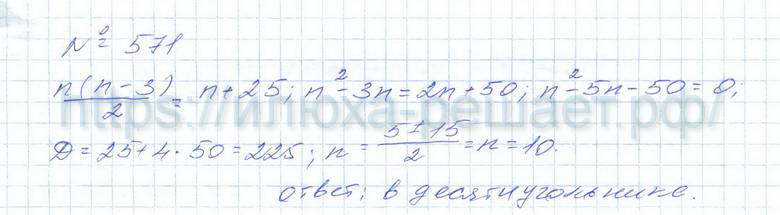 № 571
n(n-3)/2 = n+25; n²-3n=2n+50; n²-5n-50=0;
https://илюха-решает.рф/
D=25+4·50=225; n = 5±15/2 = n=10.
ответ: в десятиугольнике.